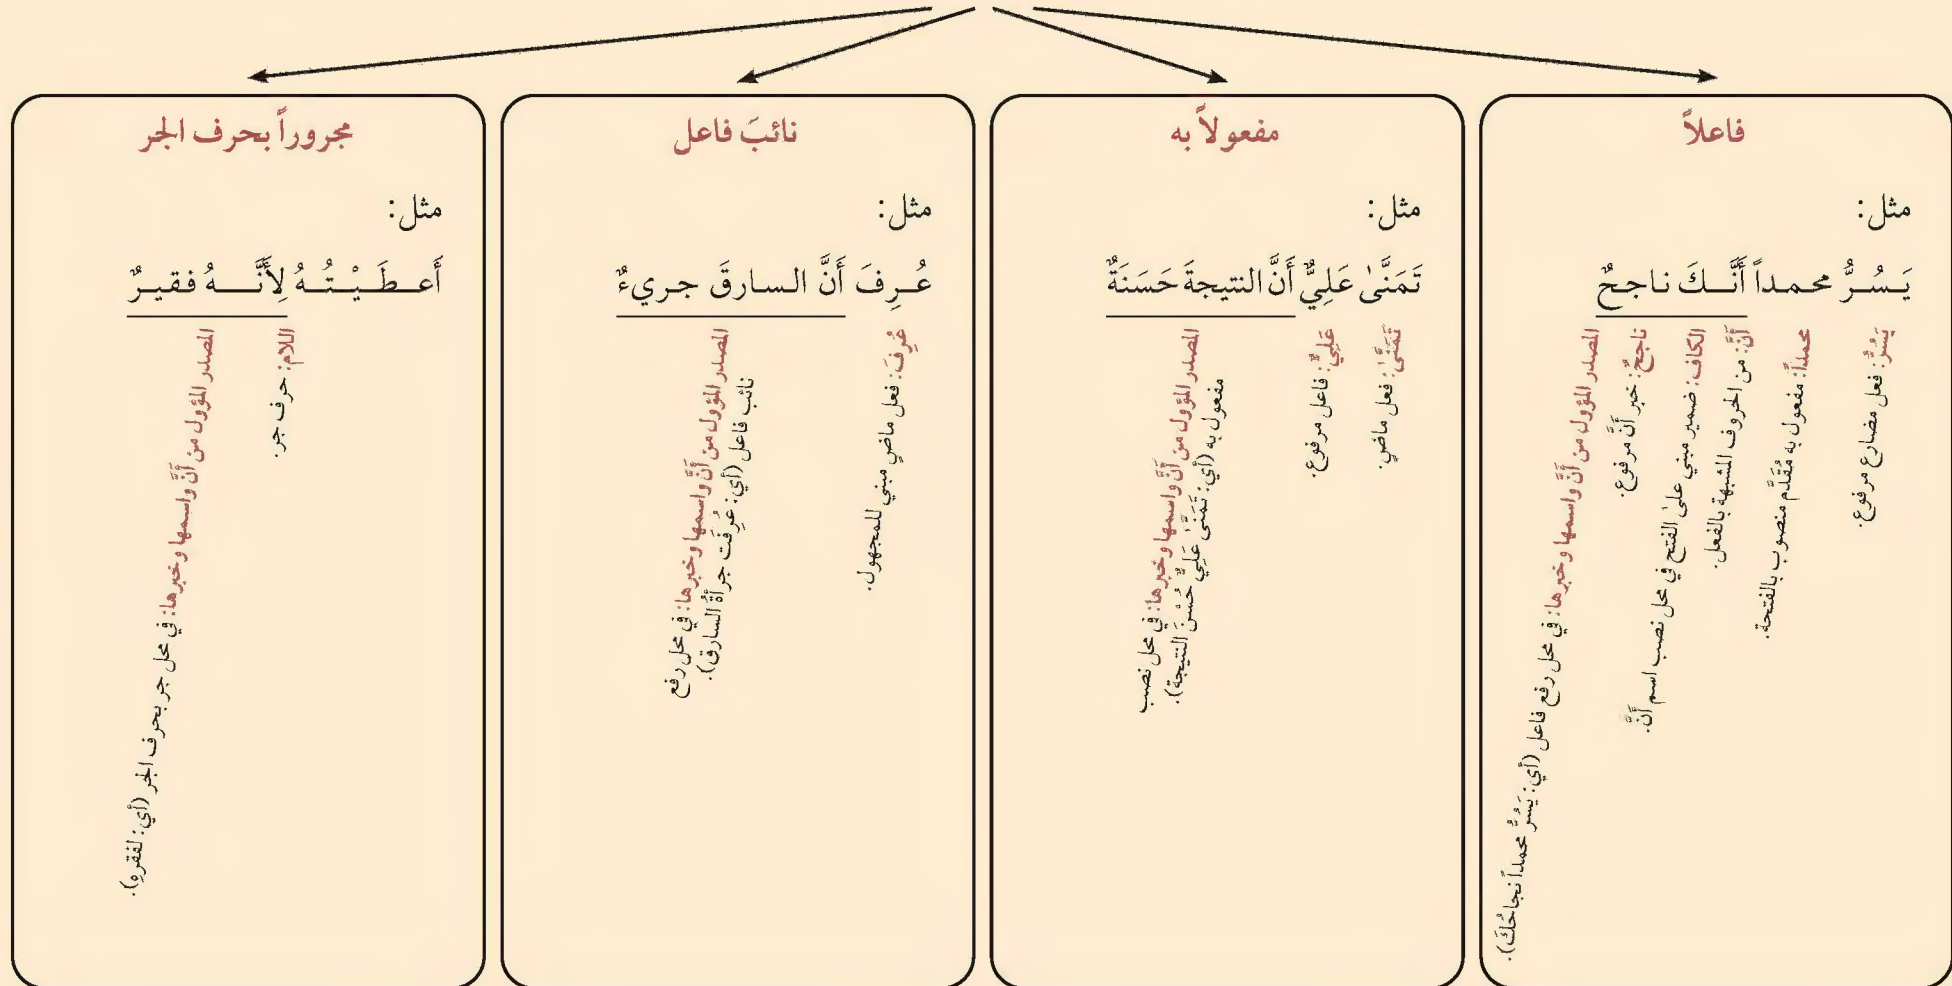 فاعلاً
مثل:
يَـسُـرُّ محمداً أَنَّـكَ ناجحٌ
يَسُرُّ: فعل مضارع مرفوع.
محمداً: مفعول به مُقَدَّم منصوب بالفتحة.
أَنَّ: من الحروف المشبهة بالفعل.
الكاف: ضمير مبني على الفتح في محل نصب اسم أَنَّ.
ناجحٌ: خبر أَنَّ مرفوع.
المصدر المؤول من أَنَّ واسمها وخبرها: في محل رفع فاعل (أي: يَسُرُّ محمداً نجاحُكَ).
مفعولاً به
مثل:
تَمَنَّىٰ عَلِيٌّ أَنَّ النتيجةَ حَسَنَةٌ
تَمَنَّىٰ: فعل ماضٍ.
عَلِيٌّ: فاعل مرفوع.
المصدر المؤول من أَنَّ واسمها وخبرها: في محل نصب
مفعول به (أي: تَمَنَّىٰ عَلِيٌّ حُسْنَ النتيجة).
نائبَ فاعل
مثل:
عُـرِفَ أَنَّ السارقَ جريءٌ
عُرِفَ: فعل ماضٍ مبني للمجهول.
المصدر المؤول من أَنَّ واسمها وخبرها: في محل رفع
نائب فاعل (أي: عُرِفَت جرأةُ السارق).
مجروراً بحرف الجر
مثل:
أَعـطَـيْـتُـهُ لِأَنَّـهُ فقيرٌ
اللام: حرف جر.
المصدر المؤول من أَنَّ واسمها وخبرها: في محل جر بحرف الجر (أي: لفقرِهِ).